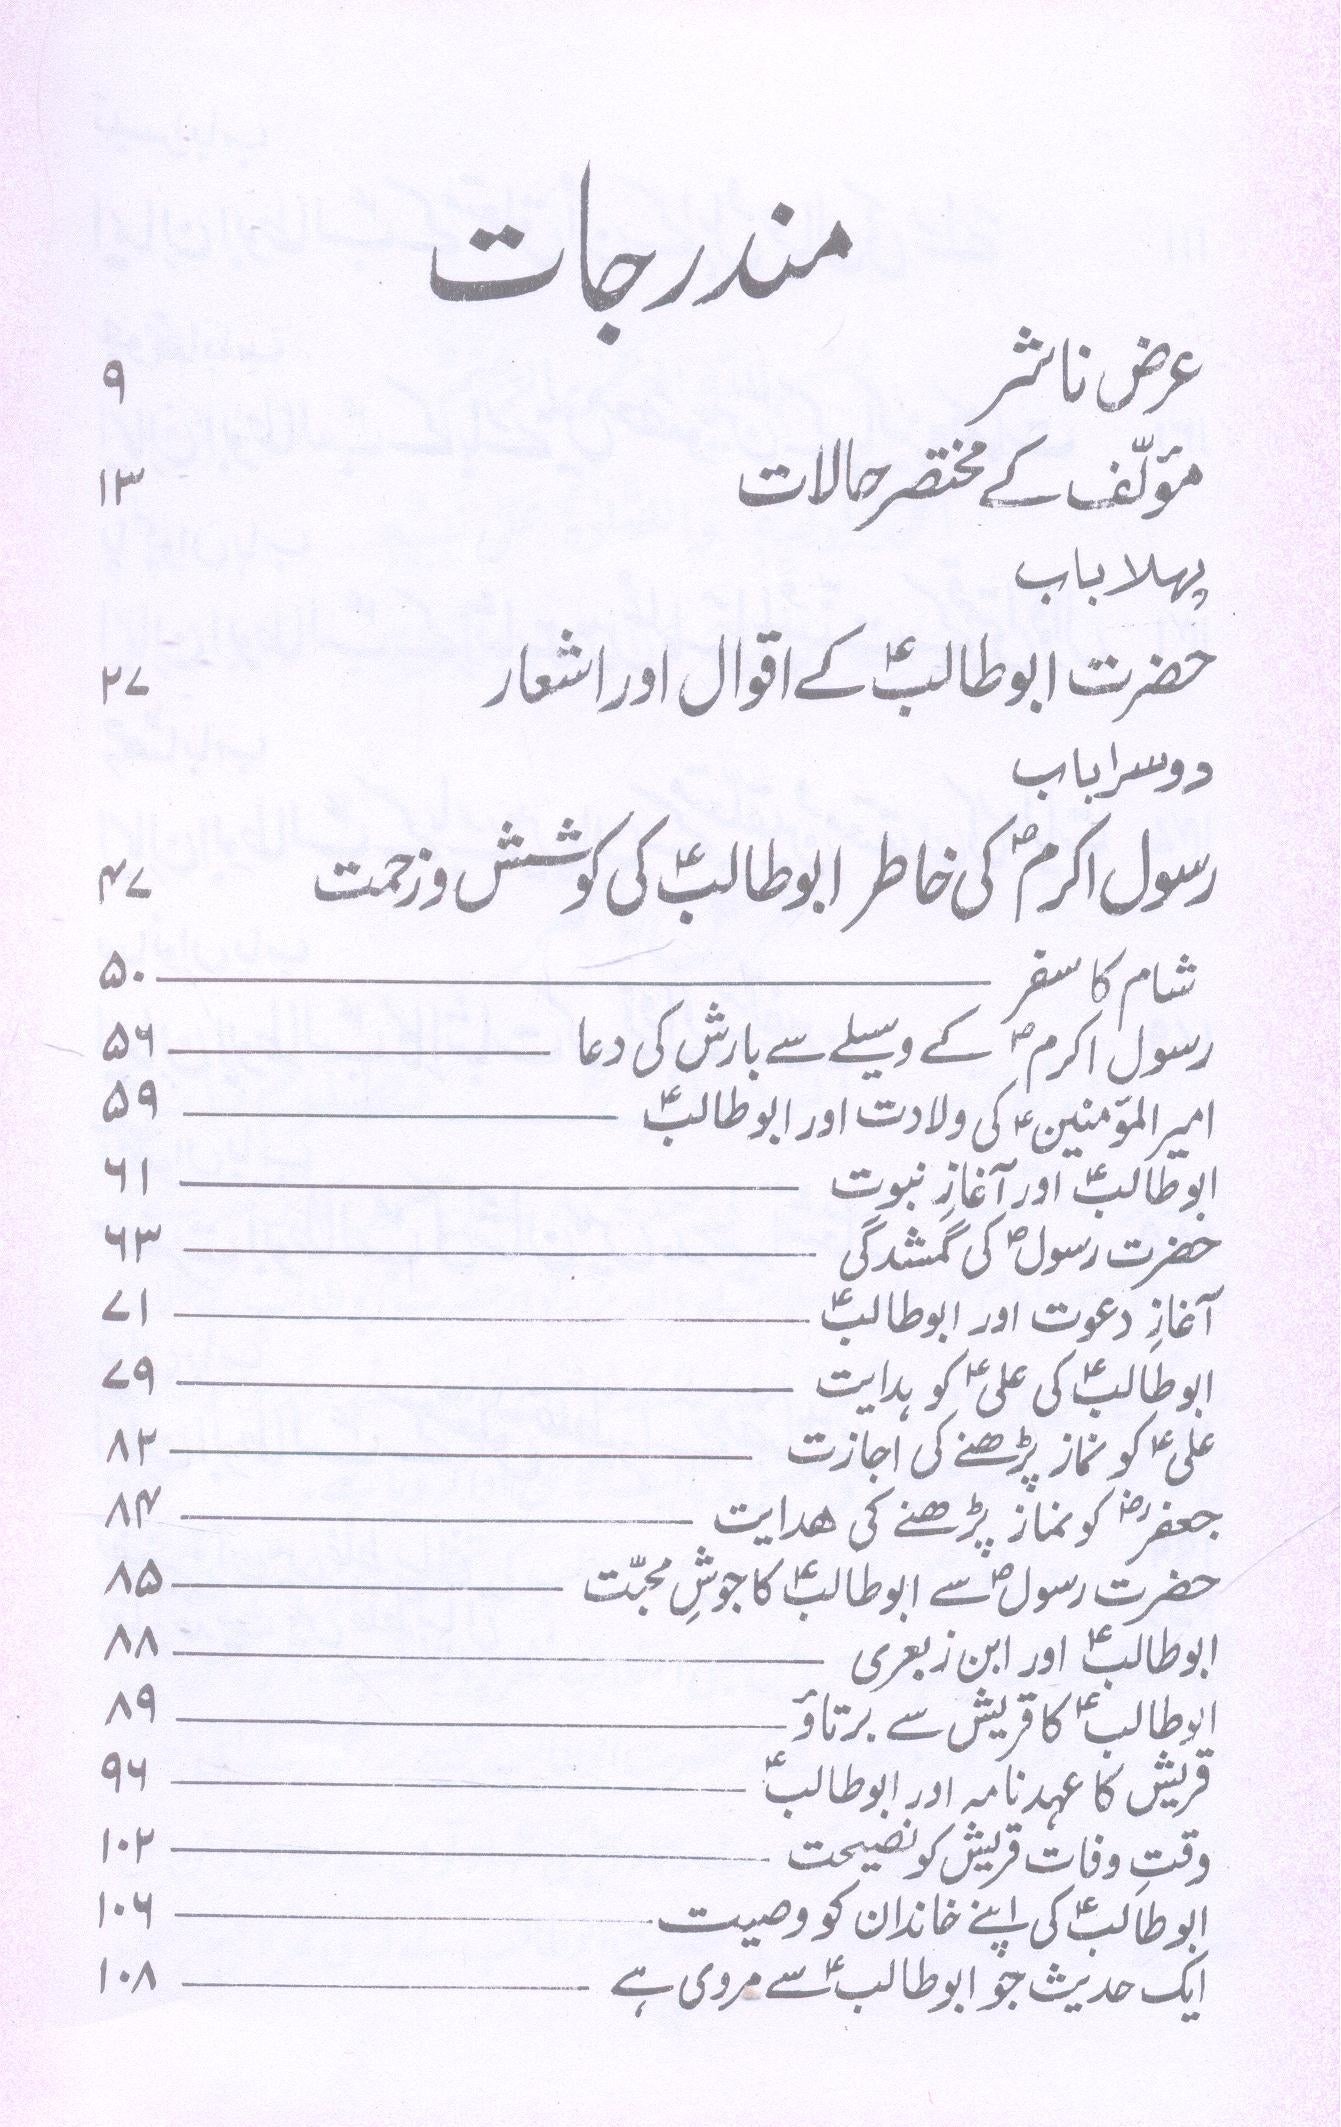 مندرجات
عرض ناشر ۹
مؤلّف کے مختصر حالات ۱۳
پہلا باب
حضرت ابوطالبؑ کے اقوال اور اشعار ۲۷
دوسرا باب
رسول اکرمؐ کی خاطر ابوطالبؑ کی کوشش و زحمت ۴۷
شام کا سفر ۵۰
رسول اکرمؐ کے وسیلے سے بارش کی دعا ۵۶
امیر المؤمنینؑ کی ولادت اور ابوطالبؑ ۵۹
ابوطالبؑ اور آغازِ نبوت ۶۱
حضرت رسولؐ کی گمشدگی ۶۳
آغازِ دعوت اور ابوطالبؑ ۷۱
ابوطالبؑ کی علیؑ کو ہدایت ۷۹
علیؑ کو نماز پڑھنے کی اجازت ۸۲
جعفرؓ کو نماز پڑھنے کی ھدایت ۸۴
حضرت رسولؐ سے ابوطالبؑ کا جوشِ محبّت ۸۵
ابوطالبؑ اور ابن زبعری ۸۸
ابوطالبؑ کا قریش سے برتاؤ ۸۹
قریش کا عہدنامہ اور ابوطالبؑ ۹۶
وقتِ وفات قریش کو نصیحت ۱۰۲
ابوطالبؑ کی اپنے خاندان کو وصیت ۱۰۶
ایک حدیث جو ابوطالبؑ سے مروی ہے ۱۰۸